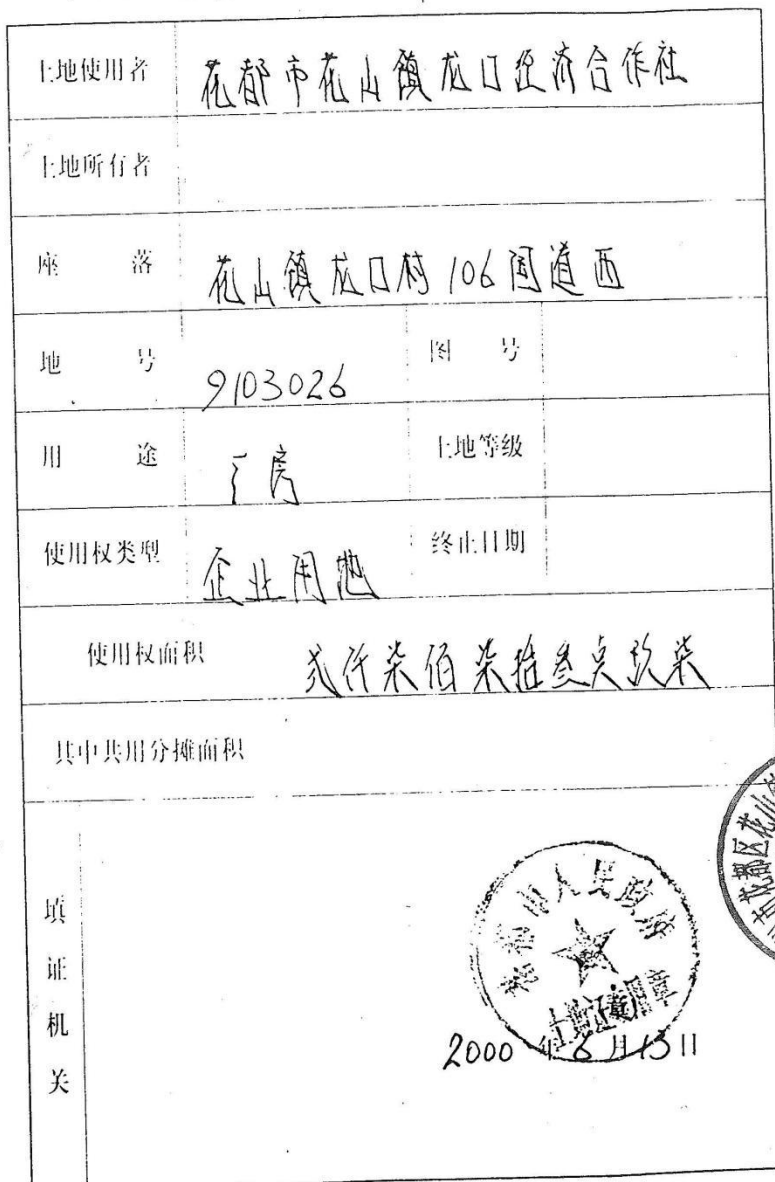 土地使用者 花都市花山镇龙口经济合作社
土地所有者
座落 花山镇龙口村106国道西
地号 9103026 图号
用途 厂房 土地等级
使用权类型 企业用地 终止日期
使用权面积 贰仟柒佰柒拾叁点玖柒
其中共用分摊面积
填证机关
花都市人民政府
土地证专用章
2000年6月15日
市花都区花山